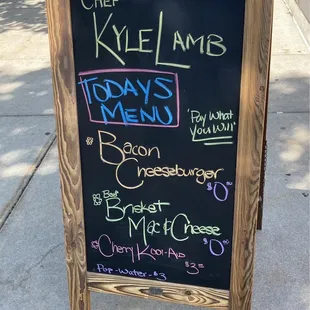 CHEF
KYLE LAMB
TODAYS
MENU
"Pay What
You WILL"
Bacon
Cheeseburger
$0
Beef Brisket
Mac & Cheese
$0
Cherry Kool-Aid
$3
Pop-Water-$3